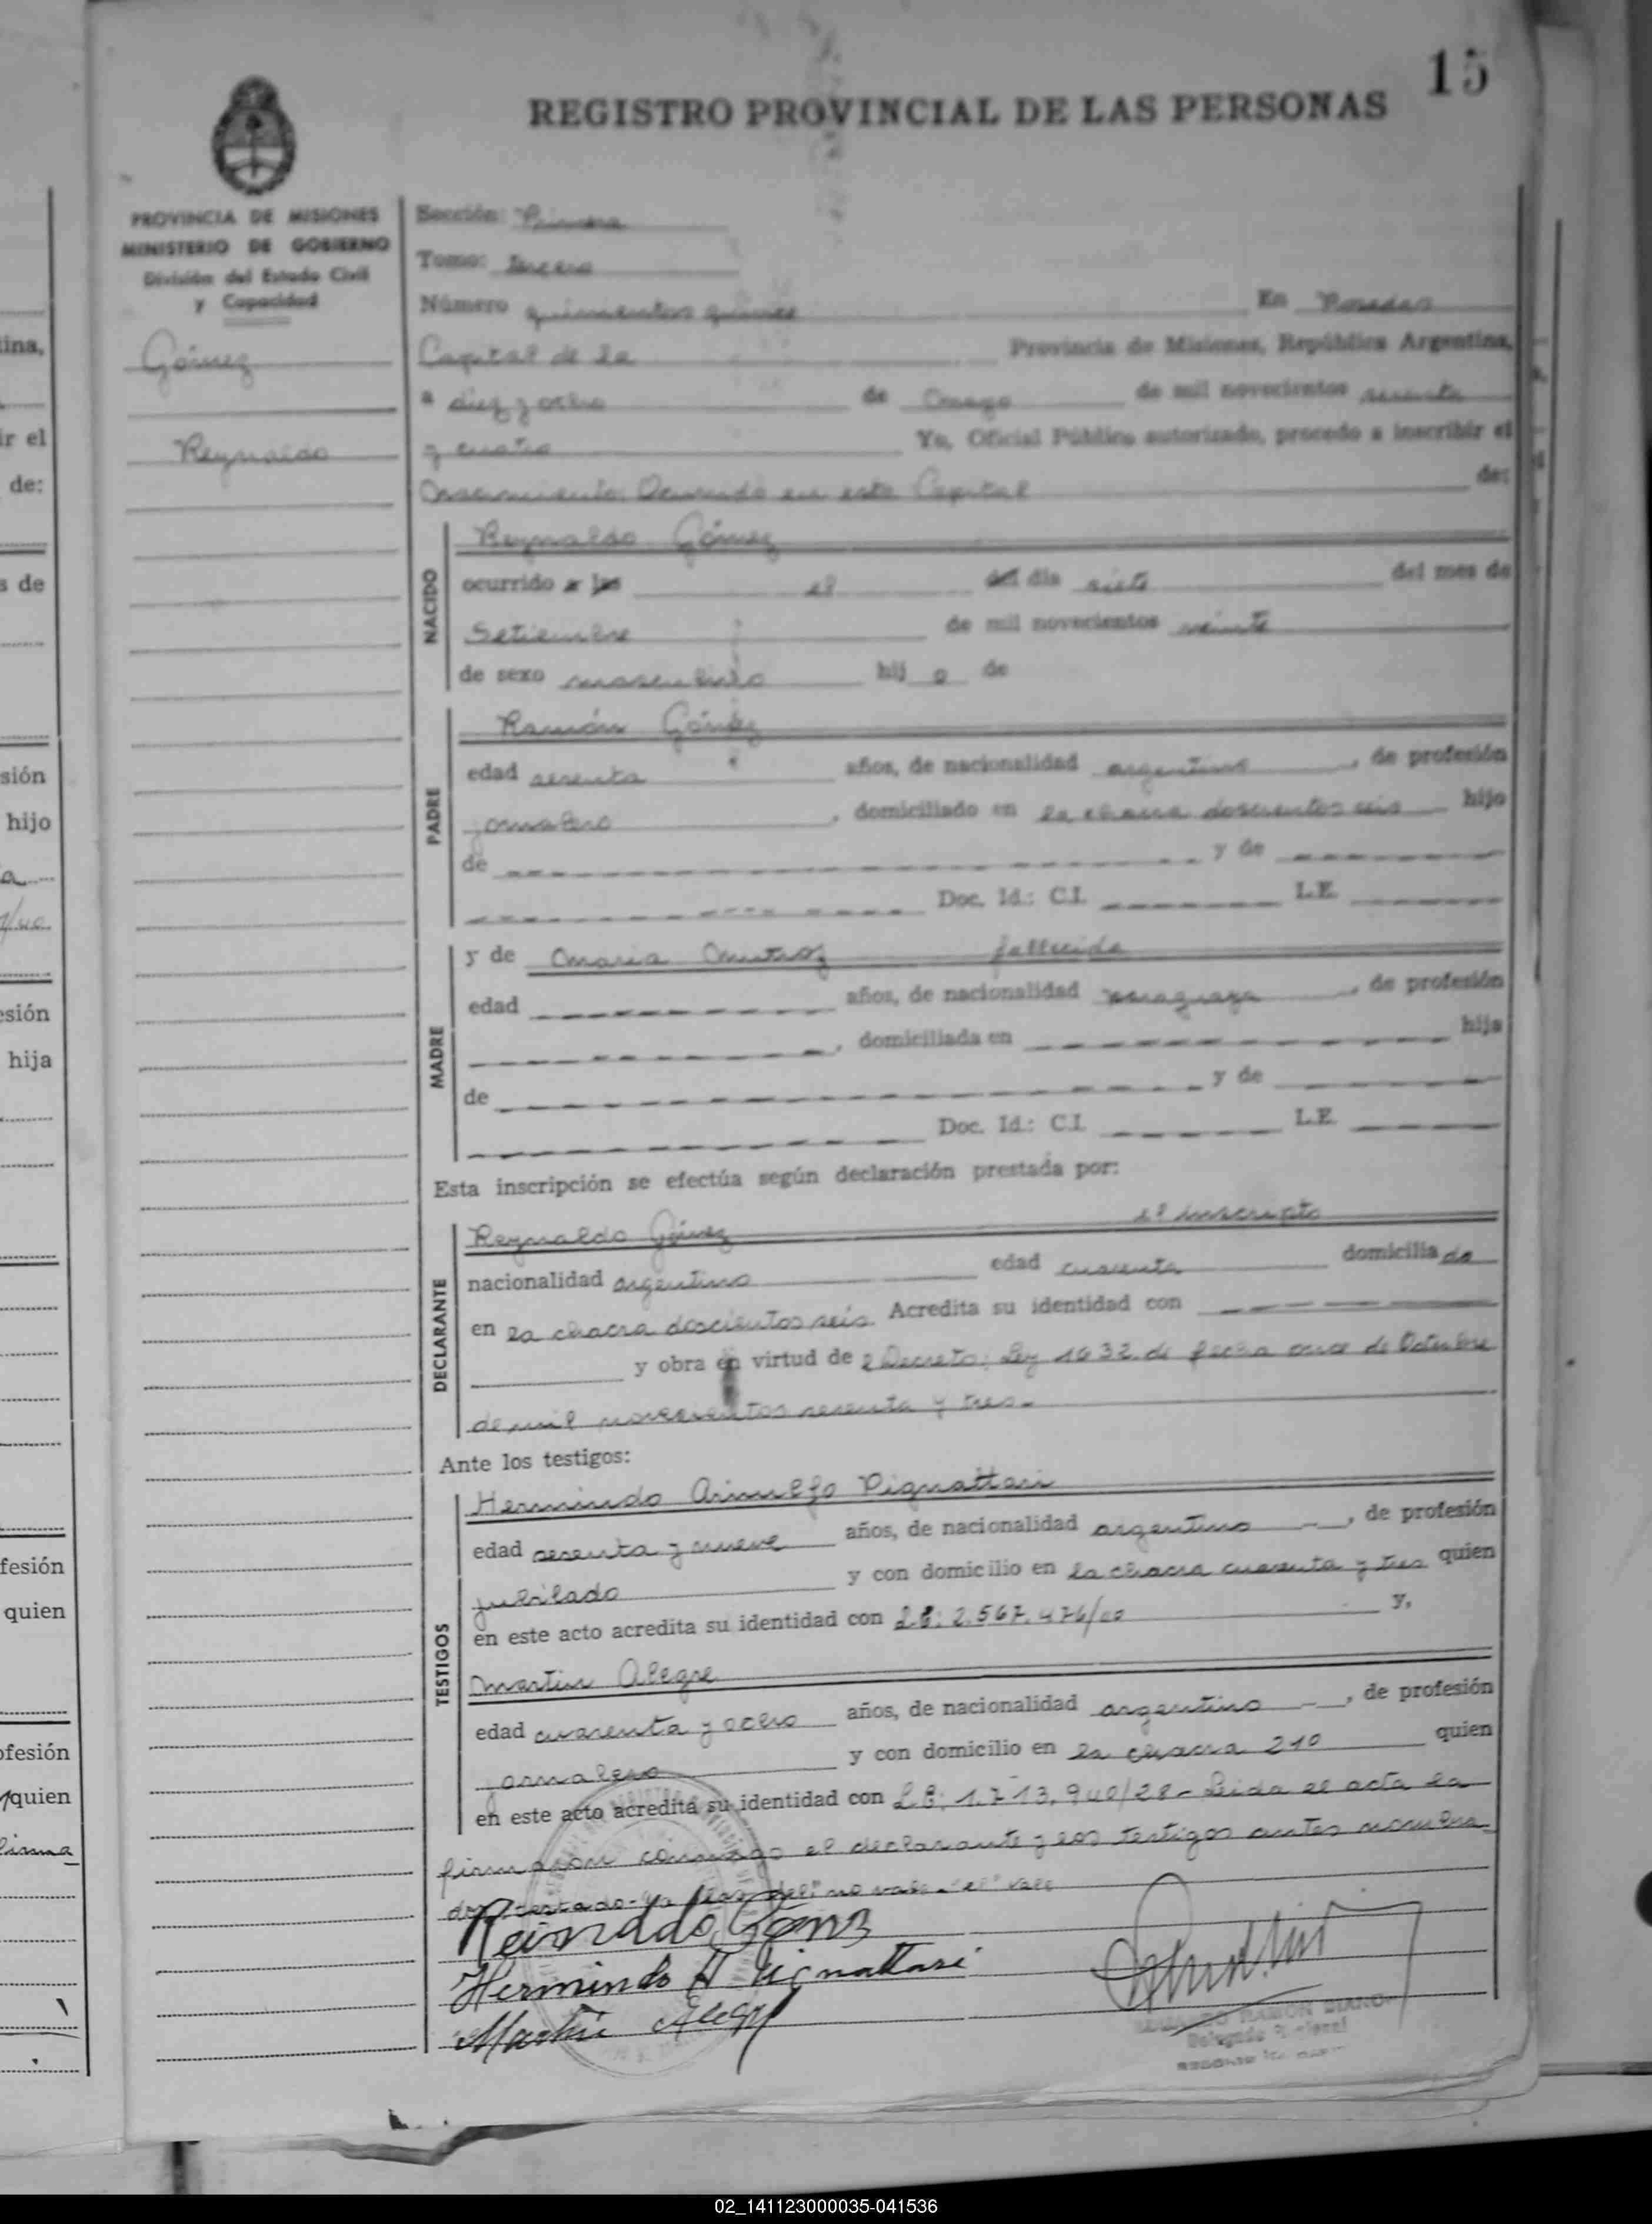 15
REGISTRO PROVINCIAL DE LAS PERSONAS
PROVINCIA DE MISIONES
MINISTERIO DE GOBIERNO
División del Estado Civil
y Capacidad
Gómez
Reynaldo
Sección: Primera
Tomo: tercero
Número quinientos quince En Posadas
Capital de la Provincia de Misiones, República Argentina,
a diez y ocho de Mayo de mil novecientos sesenta
y cuatro Yo, Oficial Público autorizado, procedo a inscribir el
Nacimiento Ocurrido en esta Capital de:
NACIDO
Reynaldo Gómez
ocurrido a las el del dia siete del mes de
Setiembre de mil novecientos veinte
de sexo masculino hij o de
PADRE
Ramón Gómez
edad sesenta años, de nacionalidad argentino, de profesión
jornalero, domiciliado en la chacra doscientos seis hijo
de y de
Doc. Id.: C.I. L.E.
MADRE
y de Maria fallecida
edad años, de nacionalidad paraguaya, de profesión
, domiciliada en hija
de y de
Doc. Id.: C.I. L.E.
Esta inscripción se efectúa según declaración prestada por:
DECLARANTE
Reynaldo Gómez el inscripto
nacionalidad argentino edad cuarenta domicilia do
en la chacra doscientos seis. Acredita su identidad con
y obra en virtud de Decreto: Ley 1632 de fecha once de Octubre
de mil novecientos sesenta y tres.-
Ante los testigos:
TESTIGOS
Hermindo Arnulfo Pignattari
edad sesenta y nueve años, de nacionalidad argentino, de profesión
jubilado y con domicilio en la chacra cuarenta y tres quien
en este acto acredita su identidad con L.E: 2.567.476/00 y,
Martin Alegre
edad cuarenta y ocho años, de nacionalidad argentino, de profesión
jornalero y con domicilio en la chacra 210 quien
en este acto acredita su identidad con L.E: 1.713.940/28.- Leida el acta la
firmaron conmigo el declarante y los testigos antes nombra-
dos, testado- "a las del" no vale.- "el" vale
Reinaldo Gomz
Hermindo A Pignattari
Martin Alegre
RAMON
Delegado
02_141123000035-041536